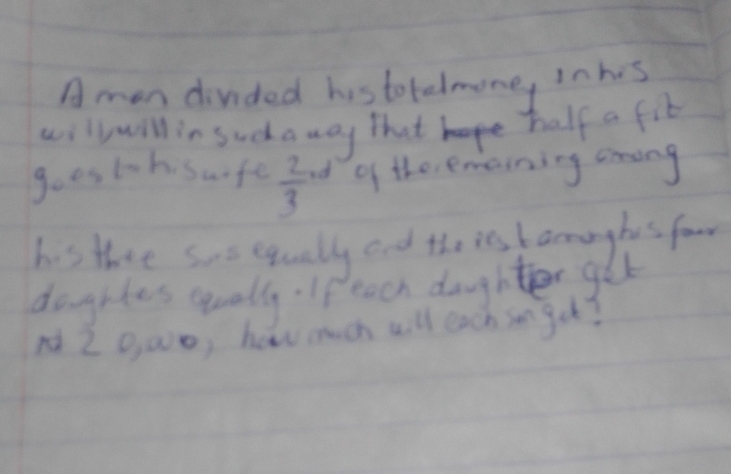 A man divided his total money in his
will, will in such a way that hope half a fit
goes to his wife 2/3rd of the remaining among
his three sons equally and the rest among his four
daughters equally. If each daughter get
₦20,000, how much will each son get?